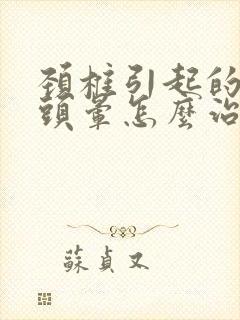 頚椎引起的
頭暈怎麼治
蘇貞又